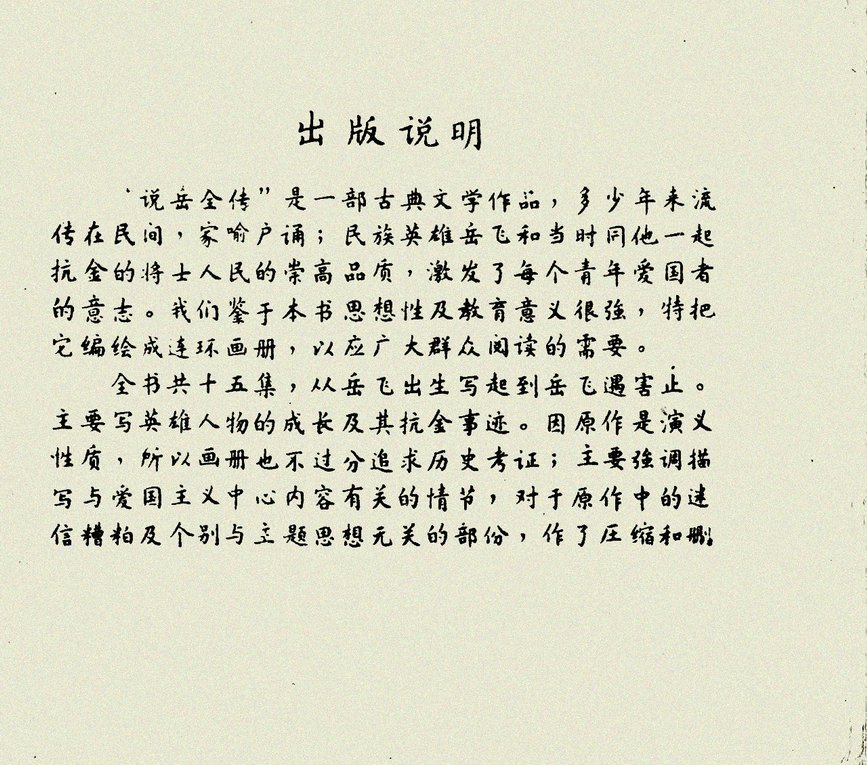 出版说明
“说岳全传”是一部古典文学作品，多少年来流
传在民间，家喻户诵；民族英雄岳飞和当时同他一起
抗金的将士人民的崇高品质，激发了每个青年爱国者
的意志。我们鉴于本书思想性及教育意义很强，特把
它编绘成连环画册，以应广大群众阅读的需要。
全书共十五集，从岳飞出生写起到岳飞遇害止。
主要写英雄人物的成长及其抗金事迹。因原作是演义
性质，所以画册也不过分追求历史考证；主要强调描
写与爱国主义中心内容有关的情节，对于原作中的迷
信糟粕及个别与主题思想无关的部份，作了压缩和删